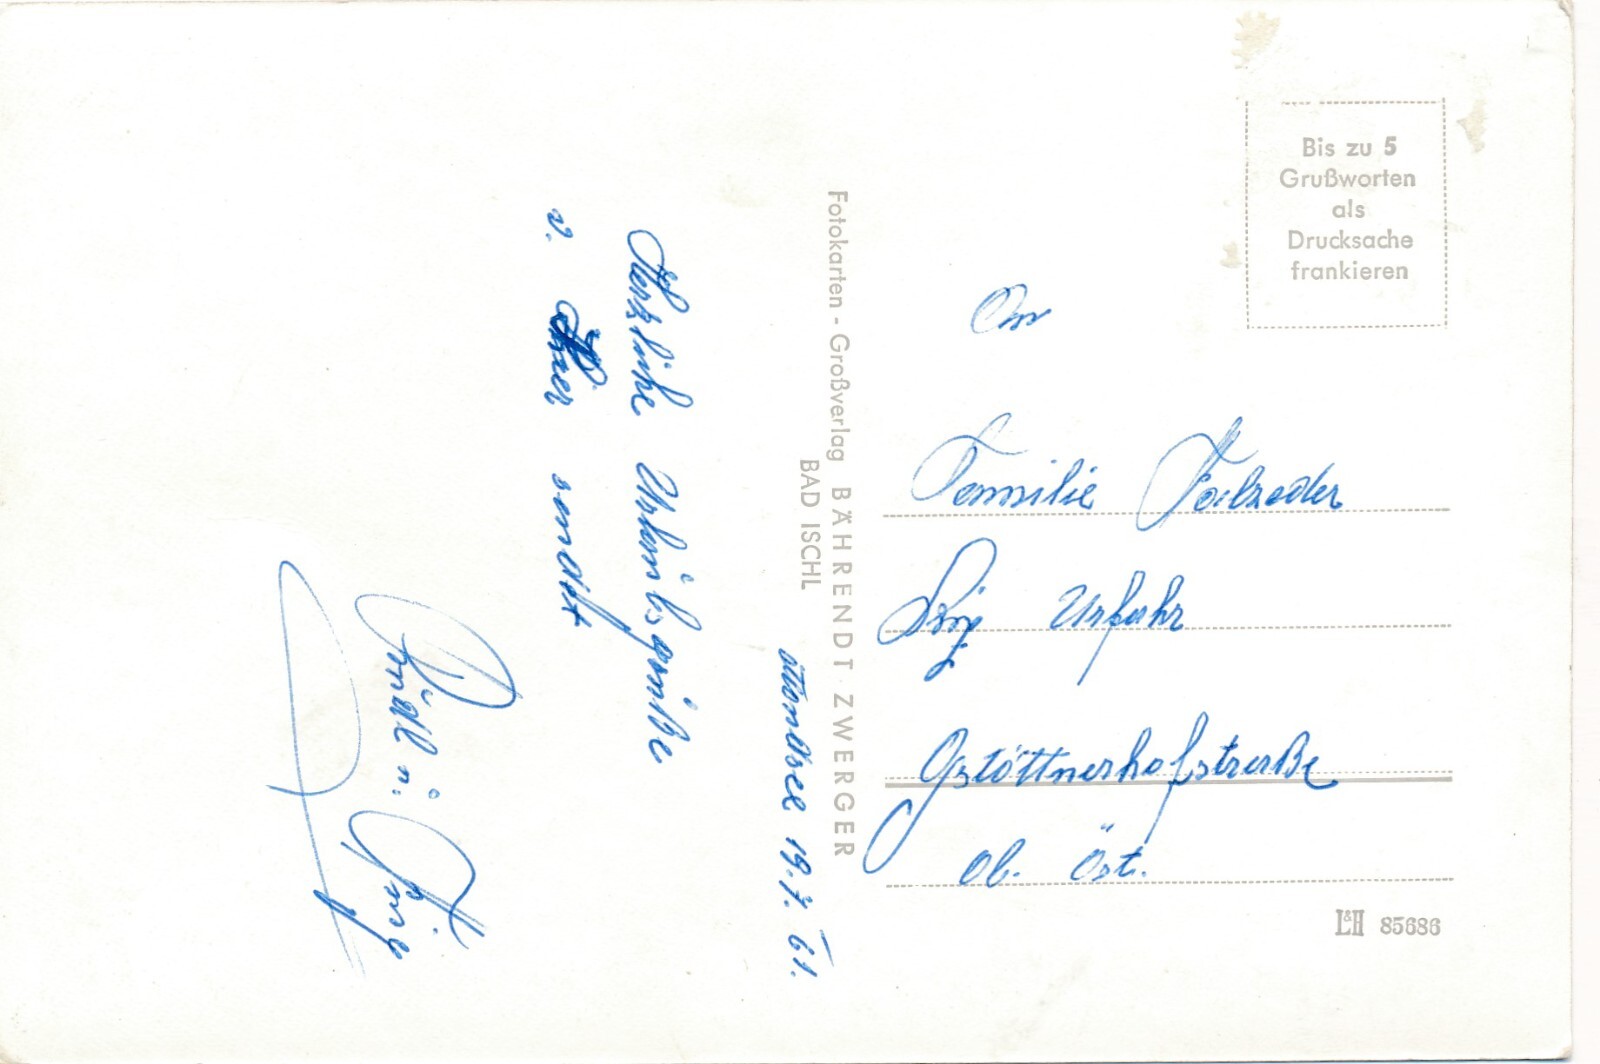 Attersee 19.7.61.
Herzliche Urlaubsgrüße
v. hier sendet
Fotokarten - Großverlag BÄHRENDT · ZWERGER
BAD ISCHL
Bis zu 5
Grußworten
als
Drucksache
frankieren
An
Familie
Linz Urfahr
Gstöttnerhofstraße
Ob. Öst.
L&H 85686